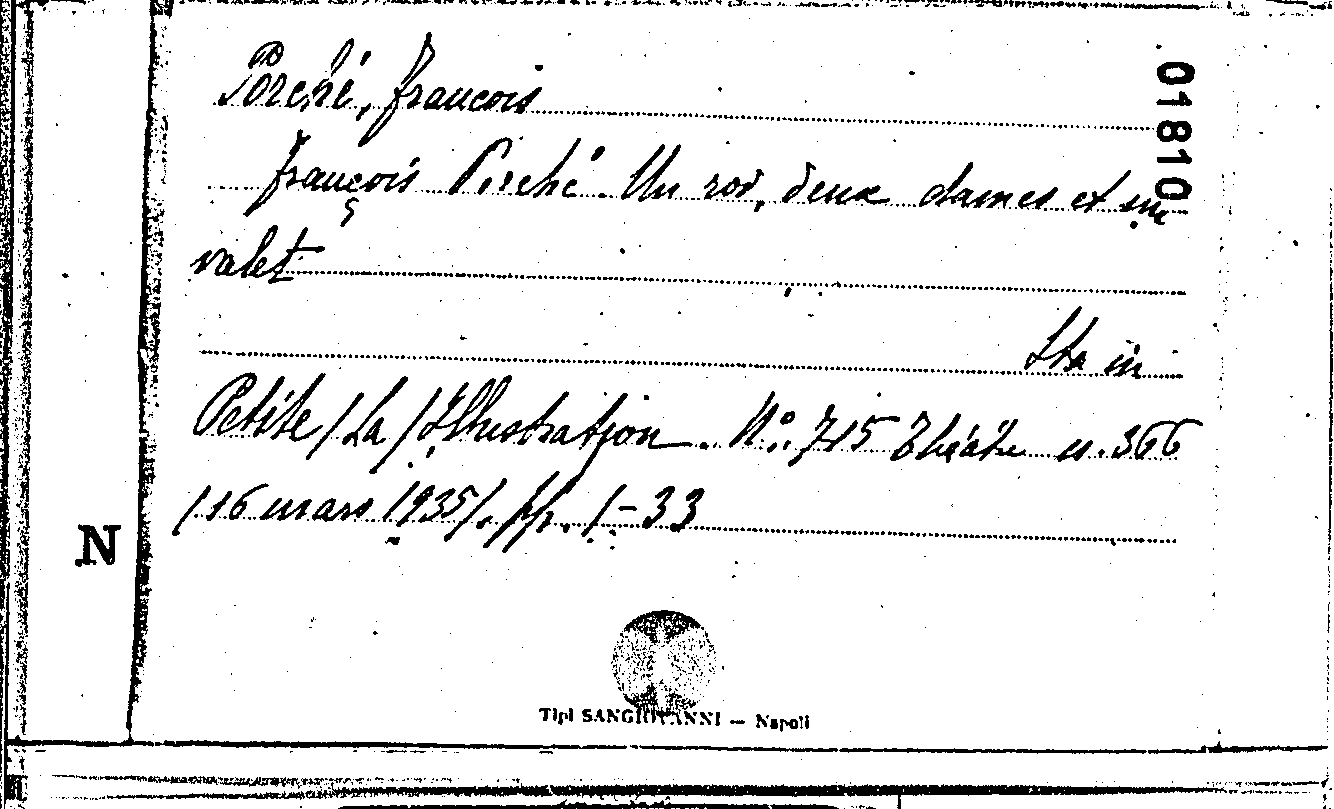 Porché, francois
françois Porché. Un roi, deux dames et un
valet
Sta in
Petite /La/ Illustration. N°. 715 Théâtre n. 366
/16 mars 1935/. pp. 1-33
01810
N
Tipi SANGIOVANNI — Napoli